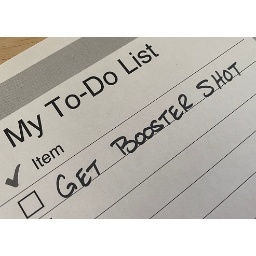 My To-Do List
✓ Item
GET BOOSTER SHOT